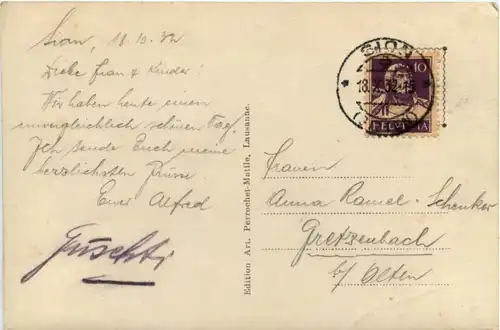 Sion, 18.10.32
Liebe Frau & Kinder!
Wir haben heute einen
unvergleichlich schönen Tag.
Ich sende Euch meine
herzlichsten Grüsse.
Euer Alfred
Edition Art. Perrochet-Matile, Lausanne.
SION
18.X.32-15
10
HELVETIA
Frauen
Anna Ramel-Schenker
Gretzenbach
b/ Olten